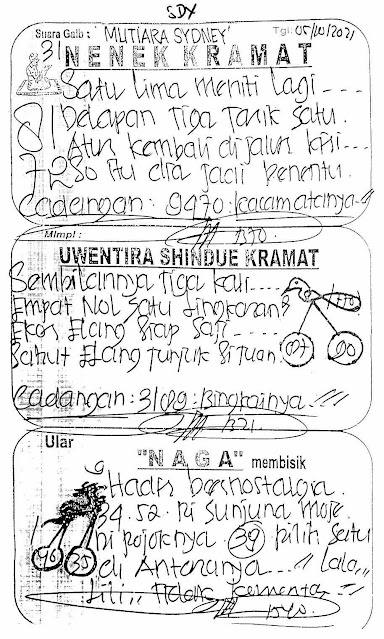 SDY
Suara Gaib: "MUTIARA SYDNEY" Tgl: 05/10/2021
31 NENEK KRAMAT
Satu Lima meniti Lagi ----
81 Delapan Tiga Tarik Satu.
Atur kembali di jalur kisi---
7230 Itu dia jadi penentu.
Cadangan: 9470: kacamatanya
Mimpi:
UWENTIRA SHINDUE KRAMAT
Sembilannya Tiga kali.....
Empat Nol Satu Lingkaran?
Ekor Elang Siap Saji -----
Sahut Elang Tunjuk Situan
07 90
Cadangan: 31089: Bingkainya.
Ular
"NAGA" membisik
Hadir bernostalgia.
34.52. ni Sunjuna moje.
ni pojoknya. 39 pilih satu
96 35 di Antaranya... "Lala,,
Lili,,